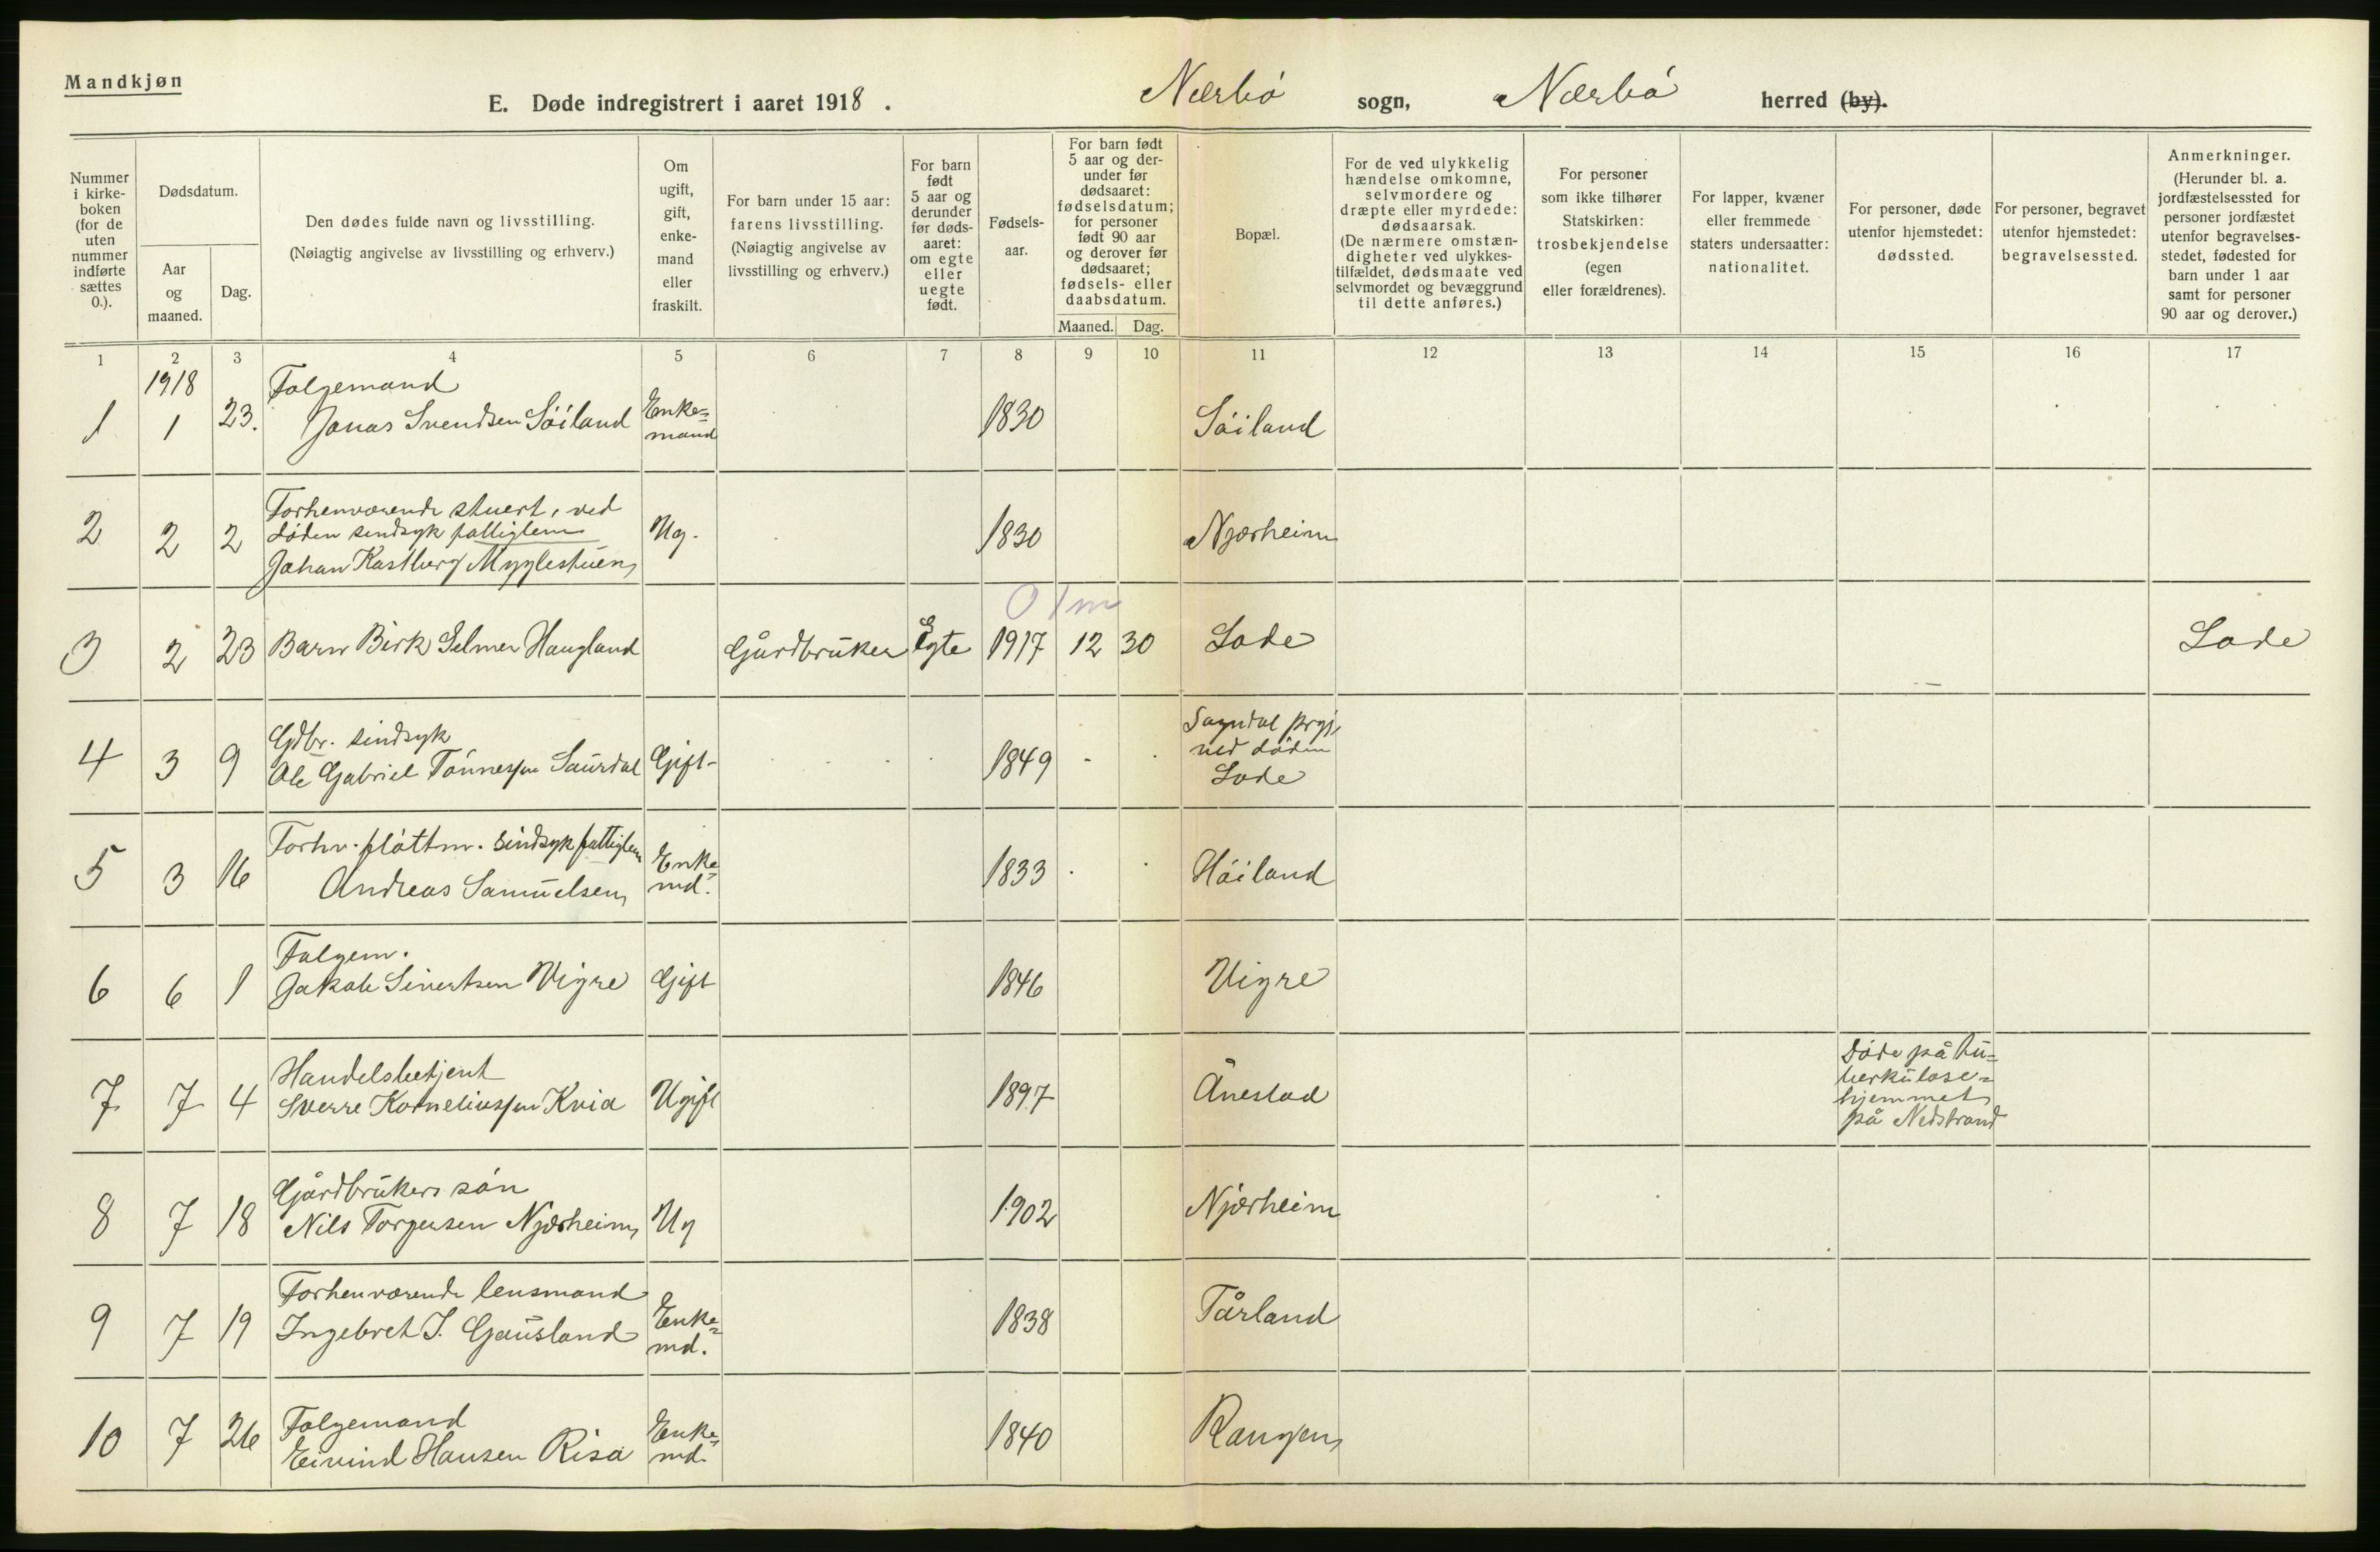 Mandkjøn
E. Døde indregistrert i aaret 1918.
Nærbø sogn, Nærbø herred (by).
Nummer i kirke-boken (for de uten nummer indførte sættes 0.).
Dødsdatum.
Aar og maaned.
Dag.
Den dødes fulde navn og livsstilling.
(Nøiagtig angivelse av livsstilling og erhverv.)
Om ugift, gift, enke-mand eller fraskilt.
For barn under 15 aar: farens livsstilling.
(Nøiagtig angivelse av livsstilling og erhverv.)
For barn født 5 aar og derunder før døds-aaret: om egte eller uegte født.
Fødsels-aar.
For barn født 5 aar og der-under før dødsaaret: fødselsdatum; for personer født 90 aar og derover før dødsaaret; fødsels- eller daabsdatum.
Maaned. Dag.
Bopæl.
For de ved ulykkelig hændelse omkomne, selvmordere og dræpte eller myrdede: dødsaarsak.
(De nærmere omstæn-digheter ved ulykkes-tilfældet, dødsmaate ved selvmordet og bevæggrund til dette anføres.)
For personer som ikke tilhører Statskirken: trosbekjendelse (egen eller forældrenes).
For lapper, kvæner eller fremmede staters undersaatter: nationalitet.
For personer, døde utenfor hjemstedet: dødssted.
For personer, begravet utenfor hjemstedet: begravelsessted.
Anmerkninger.
(Herunder bl. a. jordfæstelsessted for personer jordfæstet utenfor begravelses-stedet, fødested for barn under 1 aar samt for personer 90 aar og derover.)
1 2 3 4 5 6 7 8 9 10 11 12 13 14 15 16 17
1918 Folgemand
1 1 23. Jonas Svendsen Söiland Enke=mand 1830 Söiland
Forhenværende stuert, ved
döden sindsyk fattiglem
2 2 2 Johan Kastberg Myglestuen Ug. 1830 Njærheim
0 1 m
3 2 23 Barn Birk Selmer Haugland Gårdbruker Egte 1917 12 30 Lode Lode
Gdbr. sindsyk Sogndal prgj.
4 3 9 Ole Gabriel Tönnessen Saurdal Gift 1849 ved döden
Lode
Forhv. plåttm. sindsyk fattiglem
5 3 16 Andreas Samuelsen Enke=md. 1833 Höiland
Folgem.
6 6 1 Jakob Sivertsen Vigre Gift 1846 Vigre
Handelsbetjent
7 7 4 Sverre Korneliussen Kvia Ugift 1897 Ånestad
Döde på tu=
berkulose=
hjemmet
på Nedstrand
Gårdbrukers sön
8 7 18 Nils Torgersen Njærheim Ug 1902 Njærheim
Forhenværende lensmand
9 7 19 Ingebret T. Gausland Enke=md. 1838 Tårland
Folgemand
10 7 26 Eivind Hansen Risa Enke=md. 1840 Rangen